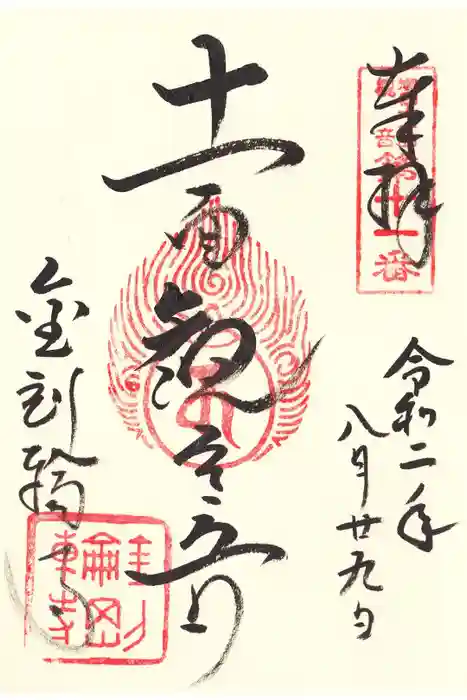 奉拝
令和二年
八月廿九日
十一面観音
金剛輪寺
第十一番
金剛輪東寺